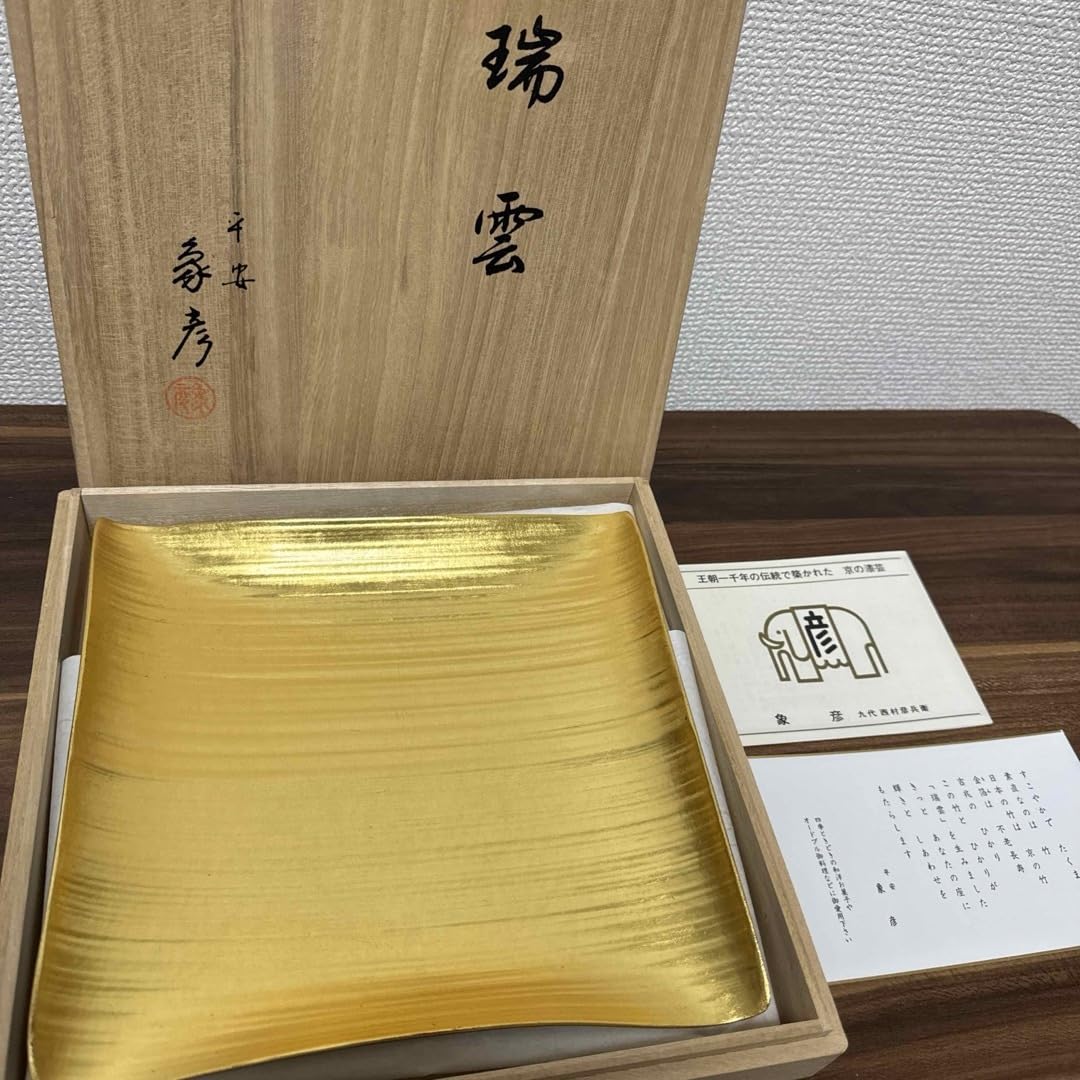 瑞雲
平安
象彦
王朝一千年の伝統で築かれた 京の漆芸
彦
象彦 九代 西村彦兵衛
すこやかで たくま
素直なのは 京の竹
日本の竹は 不老長寿
金箔は ひかりが
吉兆の ひかりました
この竹と
「瑞雲」を生みました
きっと しあわせを
輝きと
もたらします
平安
象彦
四季おりおりの和洋お菓子や
オードブル御料理などに御愛用下さい